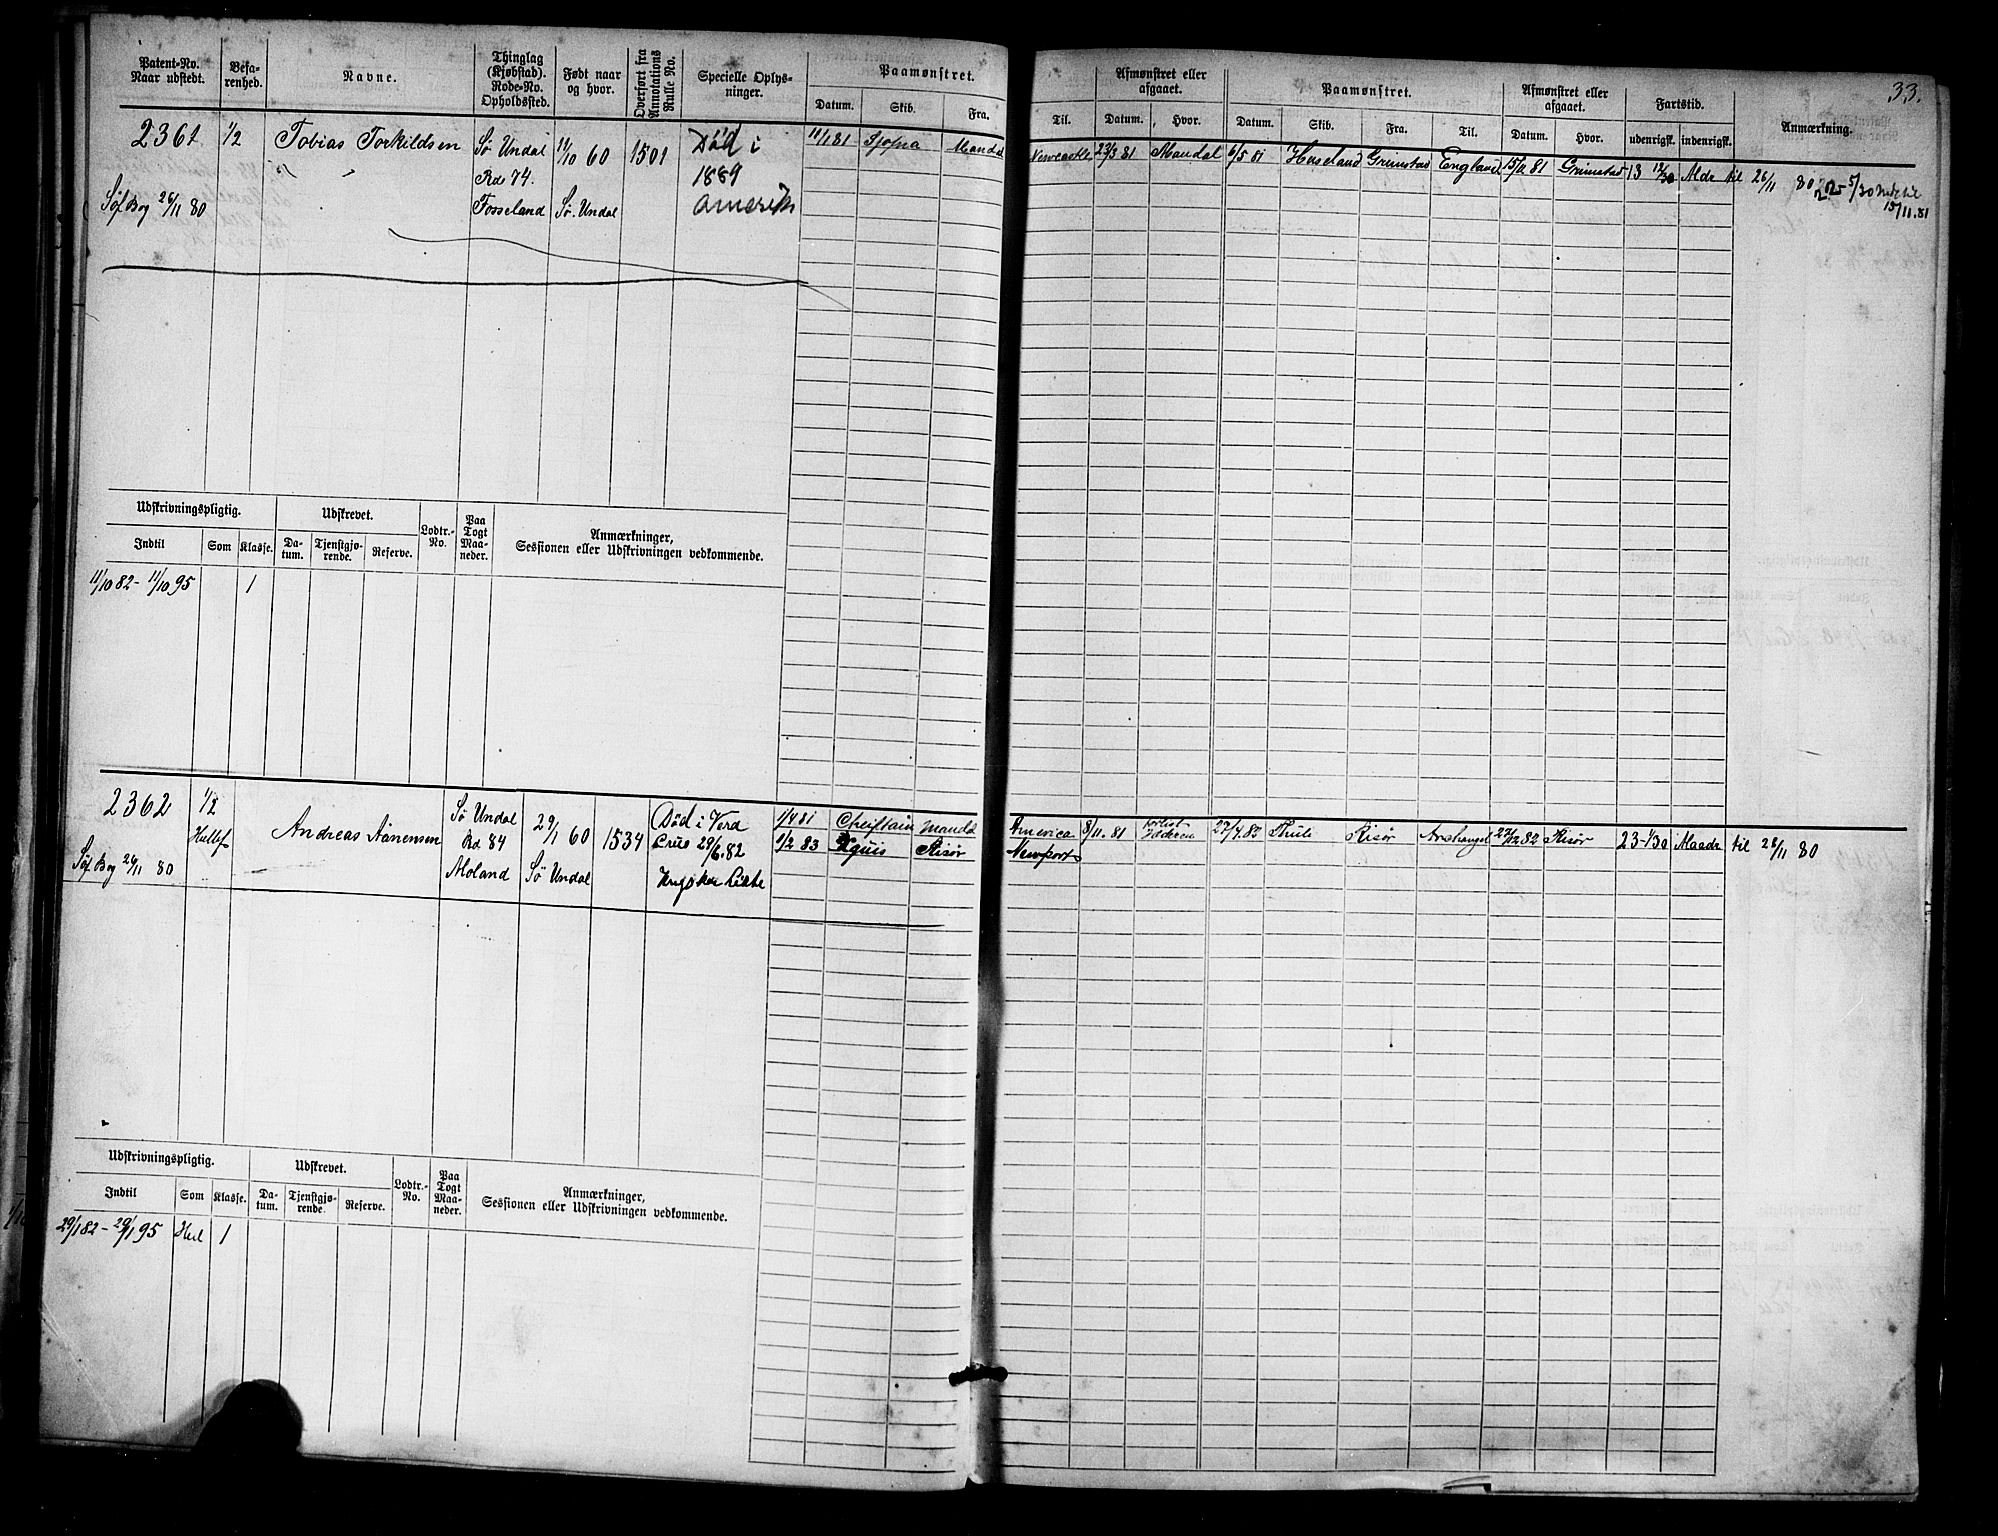 33.
Patent-No. Naar udstedt.
Befarenhed.
Navne.
Thinglag (Kjøbstad). Rode-No. Opholdssted.
Født naar og hvor.
Overført fra Annotations Rulle No.
Specielle Oplysninger.
Paamønstret.
Datum. Skib. Fra. Til.
Afmønstret eller afgaaet.
Datum. Hvor.
Paamønstret.
Datum. Skib. Fra. Til.
Afmønstret eller afgaaet.
Datum. Hvor.
Fartstid.
udenrigsk. indenrigsk.
Anmærkning.
2361 1/2 Tobias Torkildsen Sø Undal 11/10 60 1501 Død i 11/1 81 Sjofna Mandal Newcastle 23/3 81 Mandal 6/5 81 Heseland Grimstad England 15/11 81 Grimstad 13 Mdr til 26/11 80
Rde 74. 1889
Søf Bog 26/11 80 Fosseland Sø. Undal Amerika 15/11.81
Udskrivningspligtig. Udskrevet. Lodtr.-No. Paa Togt Maaneder. Anmærkninger, Sessionen eller Udskrivningen vedkommende.
Indtil Som Klasse. Datum. Tjenstgjørende. Reserve.
11/10 82 - 11/10 95 1
2362 1/2 Andreas Aanensen Sø Undal 29/1 60 1534 Død i Vera 1/4 81 Cheiftain Mandal America 8/11.81 27/4.82 Thuli Risør Archangel 27/12 82 Risør 23-1/30 Maadr til 26/11 80
Rd 84 Crus 29/6.82 9/2 83 Risør Newport
Søf Bog 26/11 80 Moland Sø Undal
Udskrivningspligtig. Udskrevet. Lodtr.-No. Paa Togt Maaneder. Anmærkninger, Sessionen eller Udskrivningen vedkommende.
Indtil Som Klasse. Datum. Tjenstgjørende. Reserve.
29/1 82 - 29/1 95 Hel 1